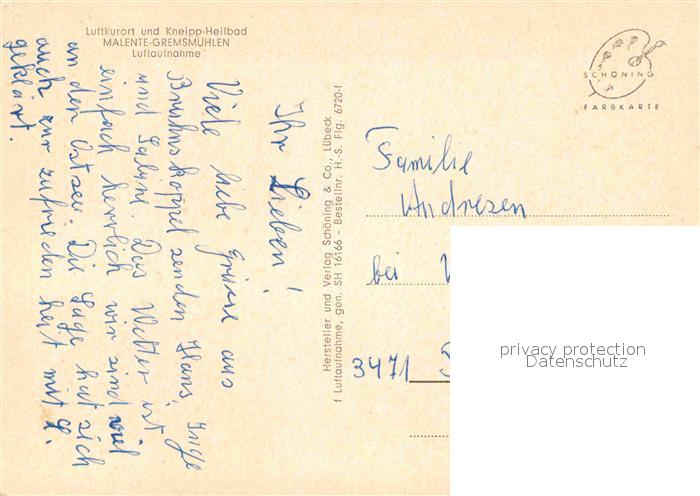 Luftkurort und Kneipp-Heilbad
MALENTE-GREMSMÜHLEN
Luftaufnahme
Ihr Lieben!
Viele liebe Grüsse aus
Bruhnskoppel senden Hans, Inge
und Sabine. Das Wetter ist
einfach herrlich wir sind viel
an der Ostsee. Die Lage hat sich
auch zur zufriedenheit mit L.
geklärt.
Hersteller und Verlag Schöning & Co., Lübeck
f Luftaufnahme, gen. SH 16166 - Bestellnr. H.-S. Flg. 6720-f
SCHÖNING
FARBKARTE
Familie
Andresen
bei
3471
privacy protection
Datenschutz